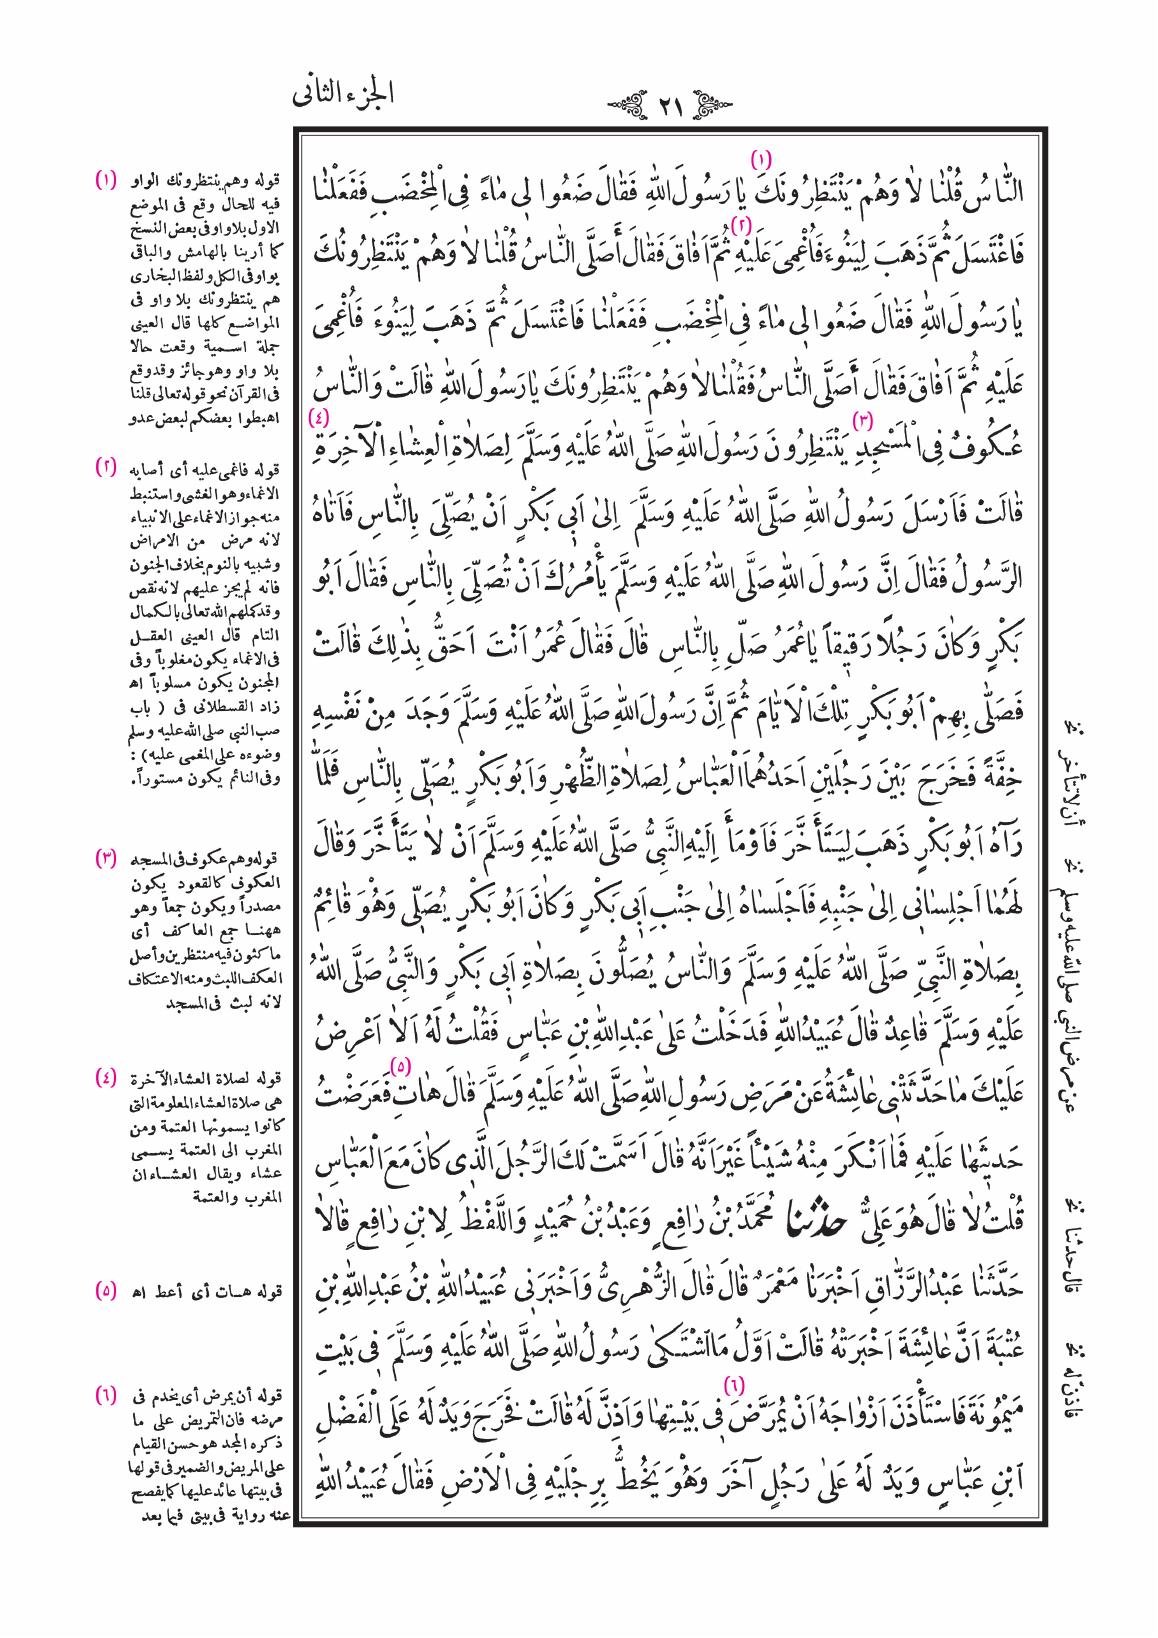 الجزء الثانى
٢١
النَّاسُ قُلْنَا لَا وَهُمْ يَنْتَظِرُونَكَ (١) يَا رَسُولَ اللهِ فَقَالَ ضَعُوا لِى مَاءً فِى الْمِخْضَبِ فَفَعَلْنَا
فَاغْتَسَلَ ثُمَّ ذَهَبَ لِيَنُوءَ فَأُغْمِىَ عَلَيْهِ (٢) ثُمَّ اَفَاقَ فَقَالَ أَصَلَّى النَّاسُ قُلْنَا لَا وَهُمْ يَنْتَظِرُونَكَ
يَا رَسُولَ اللهِ فَقَالَ ضَعُوا لِى مَاءً فِى الْمِخْضَبِ فَفَعَلْنَا فَاغْتَسَلَ ثُمَّ ذَهَبَ لِيَنُوءَ فَأُغْمِىَ
عَلَيْهِ ثُمَّ اَفَاقَ فَقَالَ أَصَلَّى النَّاسُ فَقُلْنَا لَا وَهُمْ يَنْتَظِرُونَكَ يَا رَسُولَ اللهِ قَالَتْ وَالنَّاسُ
عُكُوفٌ فِى الْمَسْجِدِ (٣) يَنْتَظِرُونَ رَسُولَ اللهِ صَلَّى اللهُ عَلَيْهِ وَسَلَّمَ لِصَلَاةِ الْعِشَاءِ الْآخِرَةِ (٤)
قَالَتْ فَاَرْسَلَ رَسُولُ اللهِ صَلَّى اللهُ عَلَيْهِ وَسَلَّمَ اِلَى اَبِى بَكْرٍ اَنْ يُصَلِّىَ بِالنَّاسِ فَاَتَاهُ
الرَّسُولُ فَقَالَ اِنَّ رَسُولَ اللهِ صَلَّى اللهُ عَلَيْهِ وَسَلَّمَ يَأْمُرُكَ اَنْ تُصَلِّىَ بِالنَّاسِ فَقَالَ اَبُو
بَكْرٍ وَكَانَ رَجُلًا رَقِيقاً يَا عُمَرُ صَلِّ بِالنَّاسِ قَالَ فَقَالَ عُمَرُ اَنْتَ اَحَقُّ بِذٰلِكَ قَالَتْ
فَصَلَّى بِهِمْ اَبُو بَكْرٍ تِلْكَ الْاَيَّامَ ثُمَّ اِنَّ رَسُولَ اللهِ صَلَّى اللهُ عَلَيْهِ وَسَلَّمَ وَجَدَ مِنْ نَفْسِهِ
خِفَّةً فَخَرَجَ بَيْنَ رَجُلَيْنِ اَحَدُهُمَا الْعَبَّاسُ لِصَلَاةِ الظُّهْرِ وَاَبُو بَكْرٍ يُصَلِّى بِالنَّاسِ فَلَمَّا
رَآهُ اَبُو بَكْرٍ ذَهَبَ لِيَتَأَخَّرَ فَاَوْمَأَ اِلَيْهِ النَّبِىُّ صَلَّى اللهُ عَلَيْهِ وَسَلَّمَ اَنْ لَا يَتَأَخَّرَ وَقَالَ
لَهُمَا اَجْلِسَانِى اِلَى جَنْبِهِ فَاَجْلَسَاهُ اِلَى جَنْبِ اَبِى بَكْرٍ وَكَانَ اَبُو بَكْرٍ يُصَلِّى وَهُوَ قَائِمٌ
بِصَلَاةِ النَّبِىِّ صَلَّى اللهُ عَلَيْهِ وَسَلَّمَ وَالنَّاسُ يُصَلُّونَ بِصَلَاةِ اَبِى بَكْرٍ وَالنَّبِىُّ صَلَّى اللهُ
عَلَيْهِ وَسَلَّمَ قَاعِدٌ قَالَ عُبَيْدُ اللهِ فَدَخَلْتُ عَلَى عَبْدِ اللهِ بْنِ عَبَّاسٍ فَقُلْتُ لَهُ اَلَا اَعْرِضُ
عَلَيْكَ مَا حَدَّثَتْنِى عَائِشَةُ عَنْ مَرَضِ رَسُولِ اللهِ صَلَّى اللهُ عَلَيْهِ وَسَلَّمَ قَالَ هَاتِ (٥) فَعَرَضْتُ
حَدِيثَهَا عَلَيْهِ فَمَا اَنْكَرَ مِنْهُ شَيْئاً غَيْرَ اَنَّهُ قَالَ اَسَمَّتْ لَكَ الرَّجُلَ الَّذِى كَانَ مَعَ الْعَبَّاسِ
قُلْتُ لَا قَالَ هُوَ عَلِىٌّ حَدَّثَنَا مُحَمَّدُ بْنُ رَافِعٍ وَعَبْدُ بْنُ حُمَيْدٍ وَاللَّفْظُ لِابْنِ رَافِعٍ قَالَا
حَدَّثَنَا عَبْدُ الرَّزَّاقِ اَخْبَرَنَا مَعْمَرٌ قَالَ قَالَ الزُّهْرِىُّ وَاَخْبَرَنِى عُبَيْدُ اللهِ بْنُ عَبْدِ اللهِ بْنِ
عُتْبَةَ اَنَّ عَائِشَةَ اَخْبَرَتْهُ قَالَتْ اَوَّلُ مَا اشْتَكَى رَسُولُ اللهِ صَلَّى اللهُ عَلَيْهِ وَسَلَّمَ فِى بَيْتِ
مَيْمُونَةَ فَاسْتَأْذَنَ اَزْوَاجَهُ اَنْ يُمَرَّضَ (٦) فِى بَيْتِهَا وَاَذِنَّ لَهُ قَالَتْ فَخَرَجَ وَيَدٌ لَهُ عَلَى الْفَضْلِ
ابْنِ عَبَّاسٍ وَيَدٌ لَهُ عَلَى رَجُلٍ آخَرَ وَهُوَ يَخُطُّ بِرِجْلَيْهِ فِى الْاَرْضِ فَقَالَ عُبَيْدُ اللهِ
(١) قوله وهم ينتظرونك الواو
فيه للحال وقع فى الموضع
الاول بلاواو فى بعض النسخ
كما أرينا بالهامش والباقى
بواو فى الكل ولفظ البخارى
هم ينتظرونك بلا واو فى
المواضع كلها قال العينى
جملة اسمية وقعت حالا
بلا واو وهو جائز وقد وقع
فى القرآن نحو قوله تعالى قلنا
اهبطوا بعضكم لبعض عدو
(٢) قوله فاغمى عليه أى أصابه
الاغماء وهو الغشى واستنبط
منه جواز الاغماء على الانبياء
لانه مرض من الامراض
وشبيه بالنوم بخلاف الجنون
فانه لم يجز عليهم لانه نقص
وقد كملهم الله تعالى بالكمال
التام قال العينى العقل
فى الاغماء يكون مغلوباً وفى
المجنون يكون مسلوباً اه
زاد القسطلانى فى ( باب
صب النبي صلى الله عليه وسلم
وضوءه على المغمى عليه) :
وفى النائم يكون مستوراً.
(٣) قوله وهم عكوف فى المسجد
العكوف كالقعود يكون
مصدراً ويكون جمعاً وهو
ههنا جمع العاكف أى
ماكثون فيه منتظرين وأصل
العكف اللبث ومنه الاعتكاف
لانه لبث فى المسجد
(٤) قوله لصلاة العشاء الآخرة
هى صلاة العشاء المعلومة التى
كانوا يسمونها العتمة ومن
المغرب الى العتمة يسمى
عشاء ويقال العشاءان
المغرب والعتمة
(٥) قوله هات أى أعط اه
(٦) قوله أن يمرض أى يخدم فى
مرضه فان التمريض على ما
ذكره المجد هو حسن القيام
على المريض والضمير فى قولها
فى بيتها عائد عليها كما يفصح
عنه رواية فى بيتى فيما بعد
نخ
أن لا تتأخر
نخ
عن مرض النبي صلى الله عليه وسلم
نخ
قال حدثنا
نخ
فاذنّ له